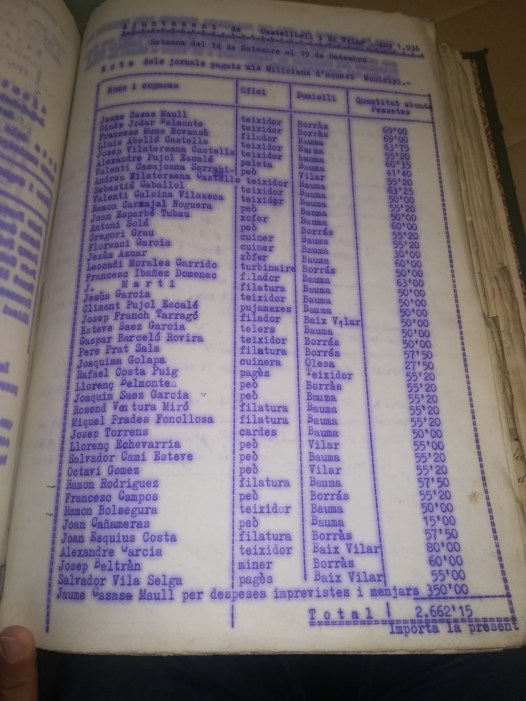 Ajuntament de Castellbell i El Vilar Any 1.936
Setmana del 14 de Setembre al 19 de Setembre
Nota dels jornals pagats als Milicians d'aquest Municipi.-
Noms i cognoms Ofici Domicili Quantitat
Pessetes
Jaume Casas Maull teixidor Borràs 69'00
Ginés Jodar Belmonte teixidor Borràs 69'00
Francesc filador Bauma 61'75
Lluís Abelló Castella teixidor Bauma 55'20
Josep Vilatersana Castells teixidor Bauma 60'15
Alexandre Pujol Escalé paleta Bauma 41'40
Valentí Casajoana peò Vilar 55'20
Andreu teixidor Bauma 63'25
Sebastiá Caballol teixidor Bauma 50'00
Valentí Calsina Vilaseca teixidor Bauma 55'20
Ramon Carmajal Noguera peò Bauma 50'00
Joan Esparbé Tubau xofer Bauma 60'00
Antoni Solá peò Borrás 55'20
Gregori Grau cuiner Bauma 55'20
Florenci Garcia cuiner Bauma
Jesús Aznar xòfer Bauma 60'00
Leocadi Morales Garrido turbinaire Borrás 50'00
Francesc Ibañez Domenec filador Bauma 63'00
J. Marti filatura Bauma 50'00
Jesús Garcia teixidor Bauma 50'00
Climent Pujol Escalé pujanexes Bauma 50'00
Josep Franch Tarragó filador Baix Vilar 50'00
Esteve Saez Garcia telers Bauma 50'00
Gaspar Barceló Rovira teixidor Borrás 50'00
Pere Prat Sala filatura Borrás 57'50
Joaquima Golapa cuinera Olesa 27'50
Rafael Costa Puig pagès Teixidor 55'20
Llorenç Belmonte peò Borràs 55'20
Joaquim Saez Garcia peò Bauma 55'20
Rosend Ventura Miró filatura Bauma 55'20
Miquel Prades Fonollosa filatura Bauma 55'20
Josep Torrens cardes Bauma 50'00
Llorenç Echevarria peò Vilar 55'00
Salvador Cami Esteve peò Bauma 55'20
Octavi Gomez peò Vilar 55'20
Ramon Rodriguez filatura Bauma 57'50
Francesc Campos peò Borrás 55'20
Ramon Bolsegura teixidor Bauma 50'00
Joan Cañameras peò Bauma 15'00
Joan Esquius Costa filatura Borràs 57'50
Alexandre Garcia teixidor Baix Vilar 80'00
Josep Beltràn miner Borràs 60'00
Salvador Vila Selga pagès Baix Vilar 55'00
Jaume Casase Maull per despeses imprevistes i menjars 350'00
Total 2.662'15
Importa la present